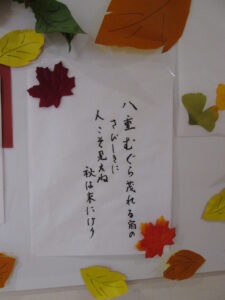 八重むぐら茂れる宿の
さびしきに
人こそ見えね
秋は来にけり